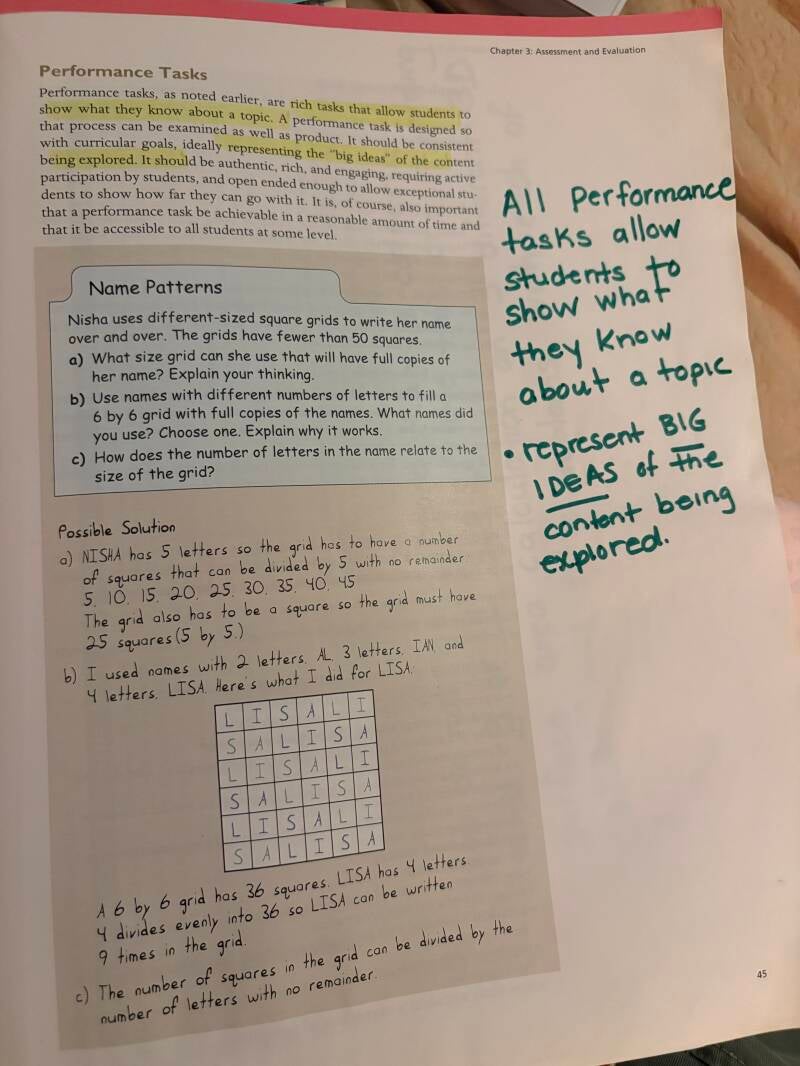 Chapter 3: Assessment and Evaluation
Performance Tasks
Performance tasks, as noted earlier, are rich tasks that allow students to
show what they know about a topic. A performance task is designed so
that process can be examined as well as product. It should be consistent
with curricular goals, ideally representing the "big ideas" of the content
being explored. It should be authentic, rich, and engaging, requiring active
participation by students, and open ended enough to allow exceptional stu-
dents to show how far they can go with it. It is, of course, also important
that a performance task be achievable in a reasonable amount of time and
that it be accessible to all students at some level.
Name Patterns
Nisha uses different-sized square grids to write her name
over and over. The grids have fewer than 50 squares.
a) What size grid can she use that will have full copies of
her name? Explain your thinking.
b) Use names with different numbers of letters to fill a
6 by 6 grid with full copies of the names. What names did
you use? Choose one. Explain why it works.
c) How does the number of letters in the name relate to the
size of the grid?
Possible Solution
a) NISHA has 5 letters so the grid has to have a number
of squares that can be divided by 5 with no remainder
5, 10, 15, 20, 25, 30, 35, 40, 45
The grid also has to be a square so the grid must have
25 squares (5 by 5.)
b) I used names with 2 letters, AL, 3 letters, IAN, and
4 letters, LISA. Here's what I did for LISA.
L I S A L I
S A L I S A
L I S A L I
S A L I S A
L I S A L I
S A L I S A
A 6 by 6 grid has 36 squares. LISA has 4 letters.
4 divides evenly into 36 so LISA can be written
9 times in the grid.
c) The number of squares in the grid can be divided by the
number of letters with no remainder.
All performance
tasks allow
students to
show what
they know
about a topic
• represent BIG
IDEAS of the
content being
explored.
45